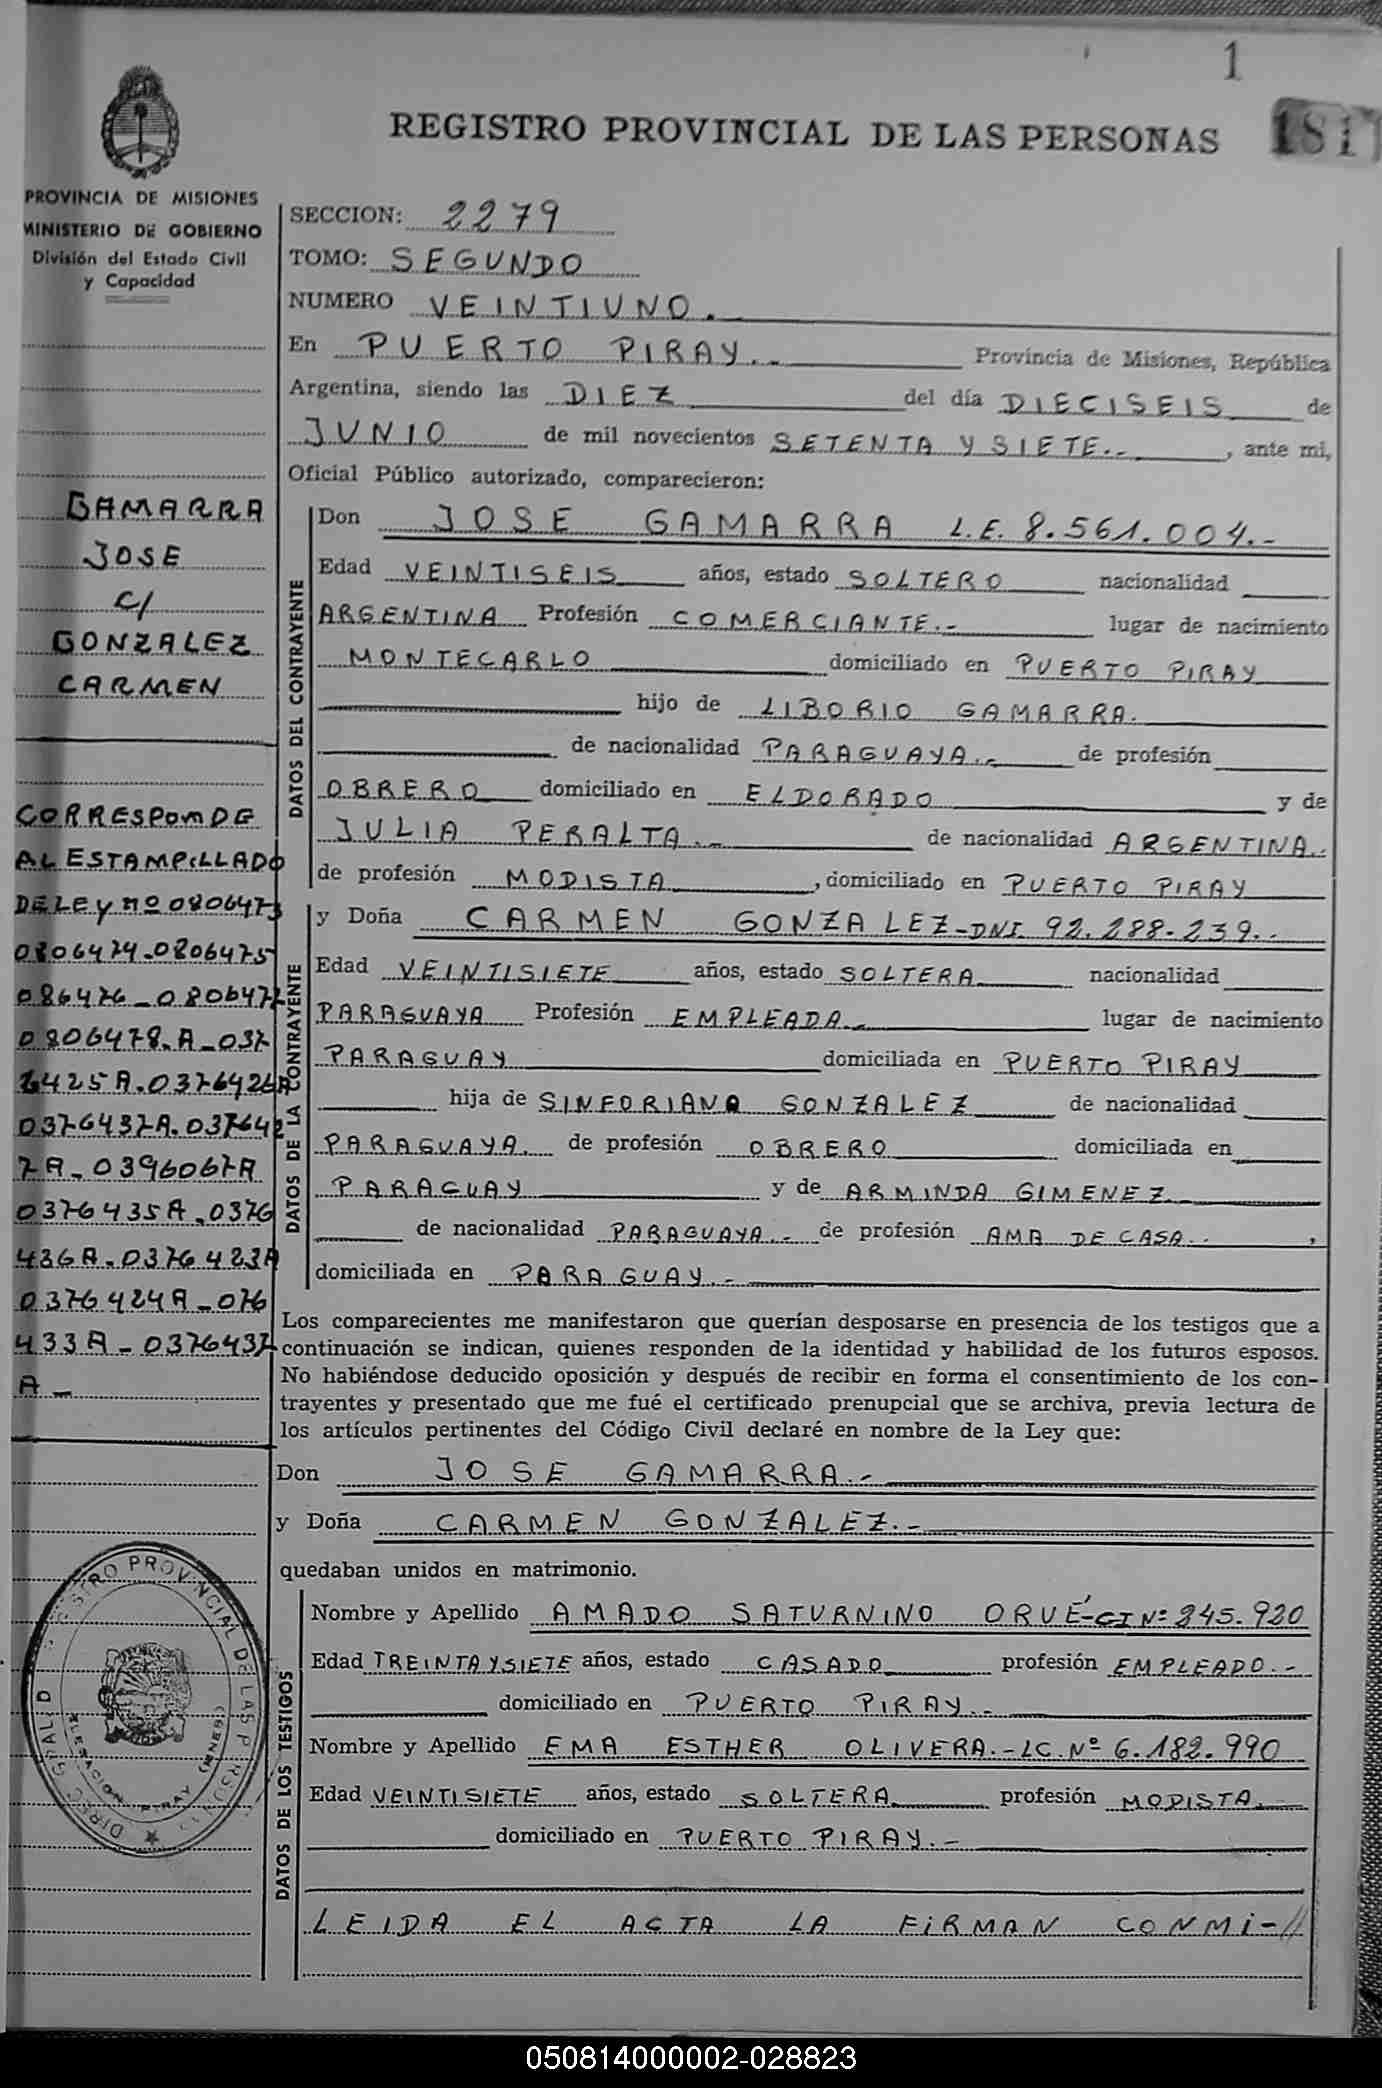 1
REGISTRO PROVINCIAL DE LAS PERSONAS
181
PROVINCIA DE MISIONES
MINISTERIO DE GOBIERNO
División del Estado Civil
y Capacidad
GAMARRA
JOSE
C/
GONZALEZ
CARMEN
CORRESPONDE
AL ESTAMPILLADO
DE LEY nº 0806473
0806474-0806475
086476-0806477
0806478.A-037
6425A.0376426A
0376437A.037642
7A-0396067A
0376435A.0376
436A.0376423A
0376424A-076
433A-0376437
A-
SECCION: 2279
TOMO: SEGUNDO
NUMERO VEINTIUNO.
En PUERTO PIRAY.- Provincia de Misiones, República
Argentina, siendo las DIEZ del día DIECISEIS de
JUNIO de mil novecientos SETENTA Y SIETE.- , ante mi,
Oficial Público autorizado, comparecieron:
DATOS DEL CONTRAYENTE
Don JOSE GAMARRA L.E. 8.561.004.-
Edad VEINTISEIS años, estado SOLTERO nacionalidad
ARGENTINA Profesión COMERCIANTE.- lugar de nacimiento
MONTECARLO domiciliado en PUERTO PIRAY
hijo de LIBORIO GAMARRA.
de nacionalidad PARAGUAYA.- de profesión
OBRERO domiciliado en ELDORADO y de
JULIA PERALTA.- de nacionalidad ARGENTINA.
de profesión MODISTA , domiciliado en PUERTO PIRAY
DATOS DE LA CONTRAYENTE
y Doña CARMEN GONZALEZ-DNI. 92.288.239.-
Edad VEINTISIETE años, estado SOLTERA nacionalidad
PARAGUAYA Profesión EMPLEADA.- lugar de nacimiento
PARAGUAY domiciliada en PUERTO PIRAY
hija de SINFORIANO GONZALEZ de nacionalidad
PARAGUAYA. de profesión OBRERO domiciliada en
PARAGUAY y de ARMINDA GIMENEZ
de nacionalidad PARAGUAYA.- de profesión AMA DE CASA.- ,
domiciliada en PARAGUAY.-
Los comparecientes me manifestaron que querían desposarse en presencia de los testigos que a
continuación se indican, quienes responden de la identidad y habilidad de los futuros esposos.
No habiéndose deducido oposición y después de recibir en forma el consentimiento de los con-
trayentes y presentado que me fué el certificado prenupcial que se archiva, previa lectura de
los artículos pertinentes del Código Civil declaré en nombre de la Ley que:
Don JOSE GAMARRA.-
y Doña CARMEN GONZALEZ.-
quedaban unidos en matrimonio.
DATOS DE LOS TESTIGOS
Nombre y Apellido AMADO SATURNINO ORUÉ-CI Nº 245.920
Edad TREINTA Y SIETE años, estado CASADO profesión EMPLEADO.-
domiciliado en PUERTO PIRAY.-
Nombre y Apellido EMA ESTHER OLIVERA.-LC.Nº 6.182.990
Edad VEINTISIETE años, estado SOLTERA profesión MODISTA.
domiciliado en PUERTO PIRAY.-
LEIDA EL ACTA LA FIRMAN CONMI-//
PROVINCIAL DE LAS
PIRAY
050814000002-028823